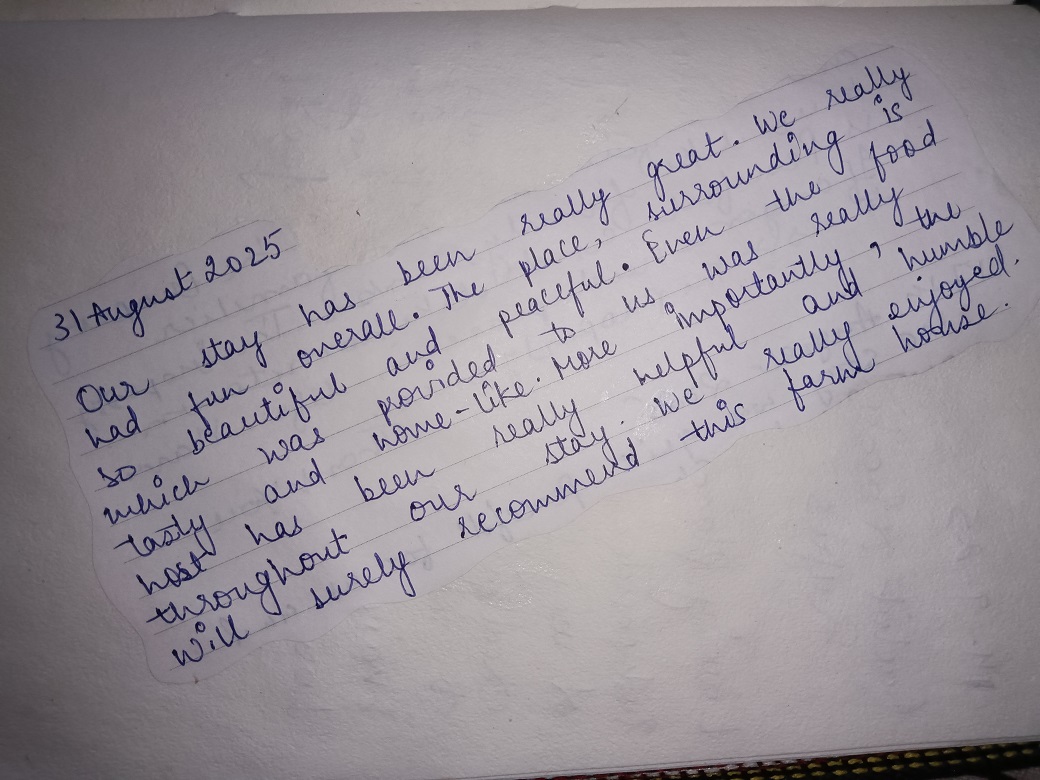 31 August 2025
Our stay has been really great. We really
had fun overall. The place, surrounding is
so beautiful and peaceful. Even the food
which was provided to us was really
tasty and home-like. More importantly, the
host has been really helpful and humble
throughout our stay. We really enjoyed.
Will surely recommend this farm house.